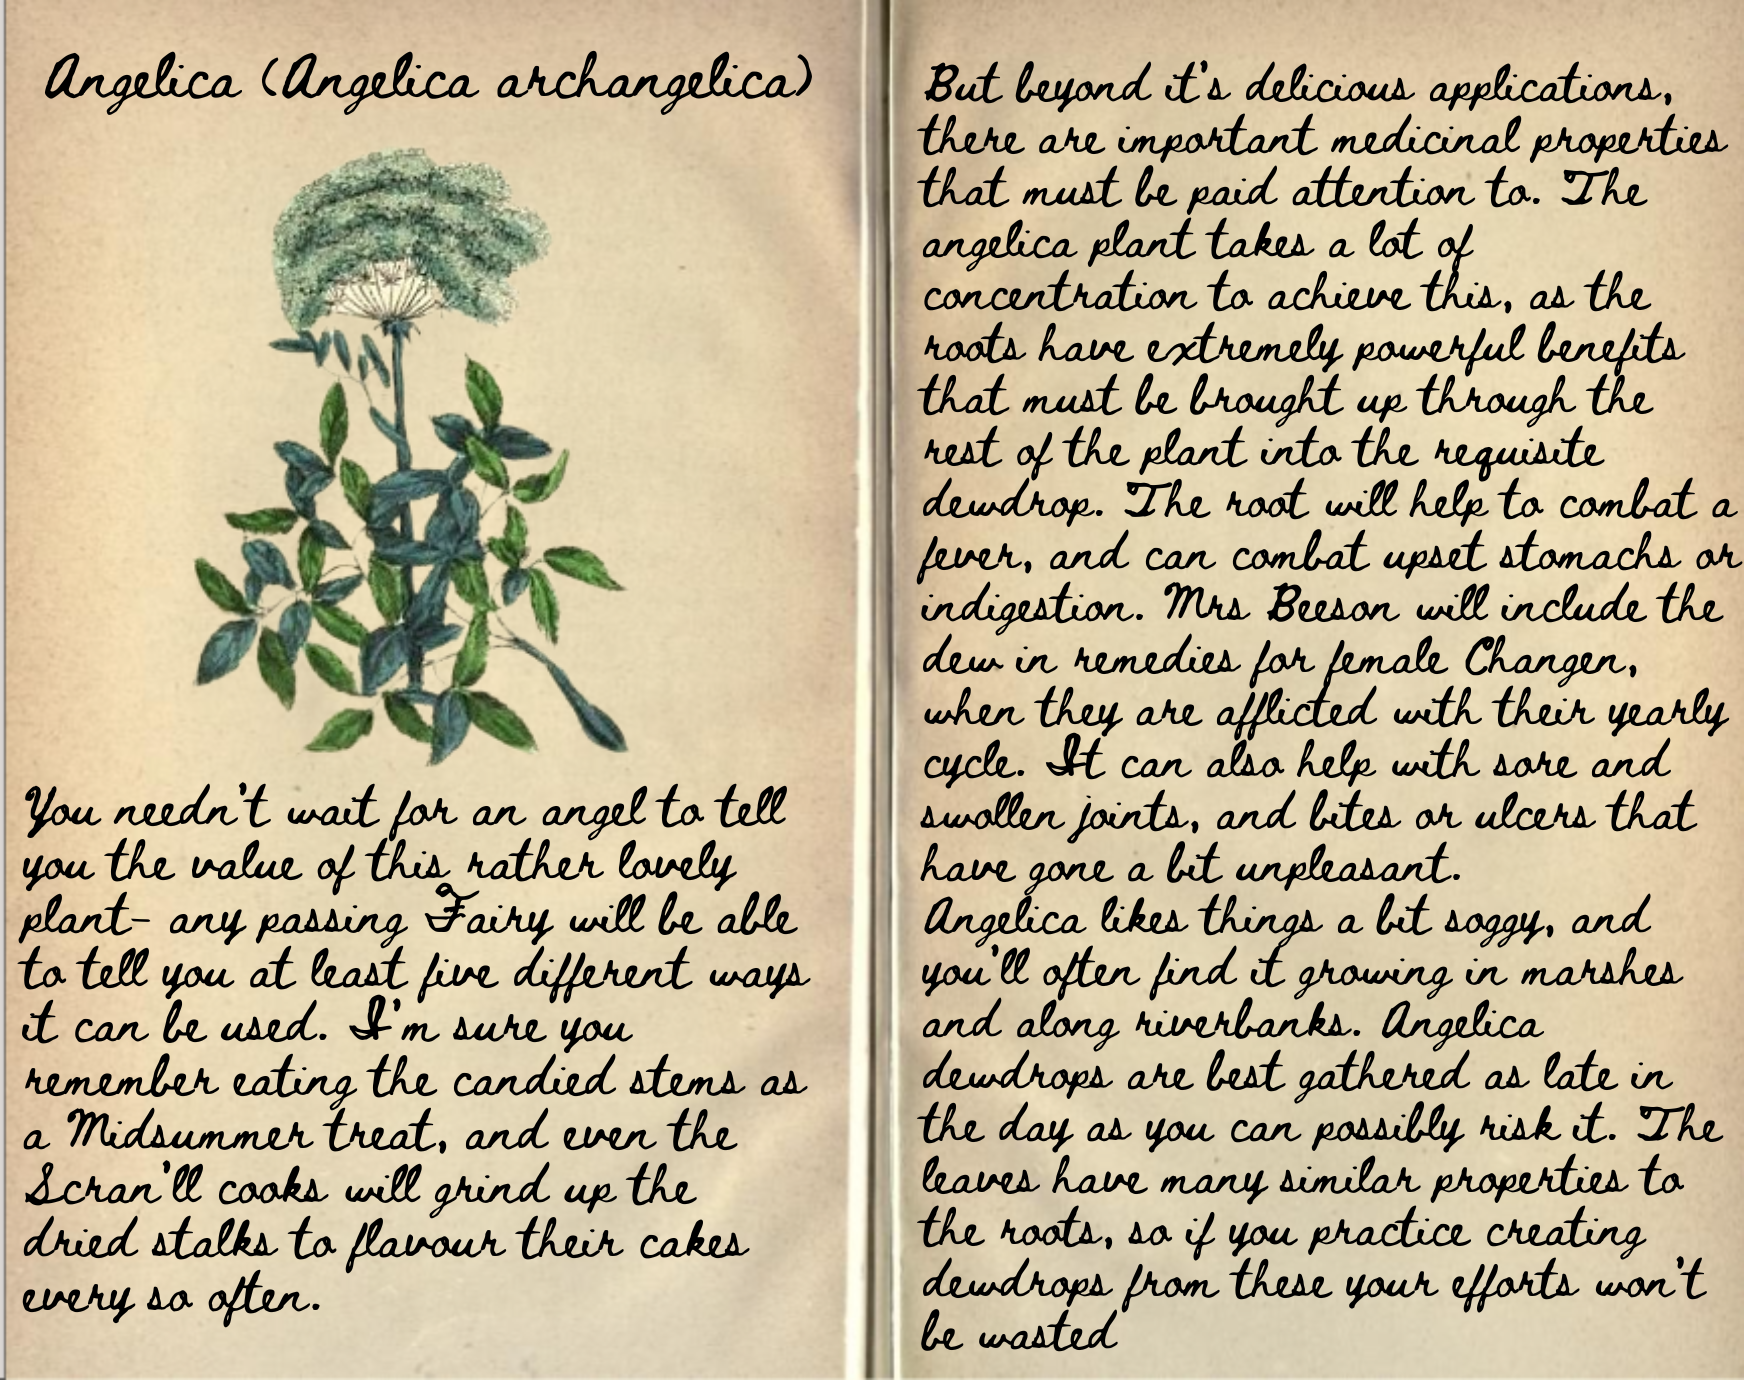 Angelica (Angelica archangelica)
You needn't wait for an angel to tell
you the value of this rather lovely
plant- any passing Fairy will be able
to tell you at least five different ways
it can be used. I'm sure you
remember eating the candied stems as
a Midsummer treat, and even the
Scran'll cooks will grind up the
dried stalks to flavour their cakes
every so often.
But beyond it's delicious applications,
there are important medicinal properties
that must be paid attention to. The
angelica plant takes a lot of
concentration to achieve this, as the
roots have extremely powerful benefits
that must be brought up through the
rest of the plant into the requisite
dewdrop. The root will help to combat a
fever, and can combat upset stomachs or
indigestion. Mrs Beeson will include the
dew in remedies for female Changen,
when they are afflicted with their yearly
cycle. It can also help with sore and
swollen joints, and bites or ulcers that
have gone a bit unpleasant.
Angelica likes things a bit soggy, and
you'll often find it growing in marshes
and along riverbanks. Angelica
dewdrops are best gathered as late in
the day as you can possibly risk it. The
leaves have many similar properties to
the roots, so if you practice creating
dewdrops from these your efforts won't
be wasted